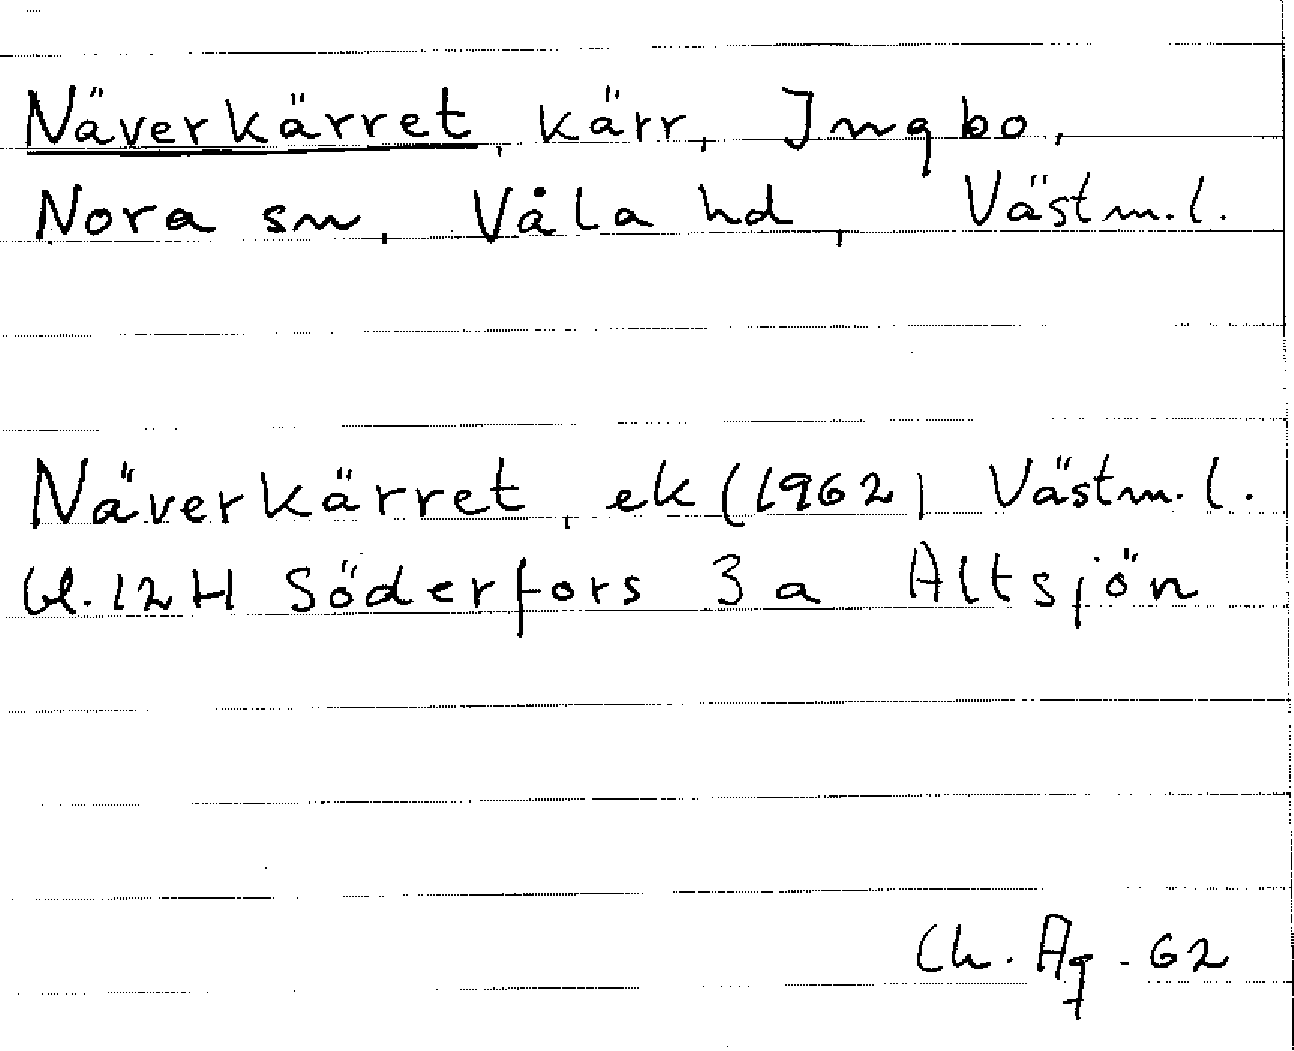 Näverkärret, kärr, Ingbo,
Nora sn, Våla hd, Västm.l.
Näverkärret, ek (1962) Västm.l.
bl. 12H Söderfors 3 a Altsjön
Ch. Ag. 62